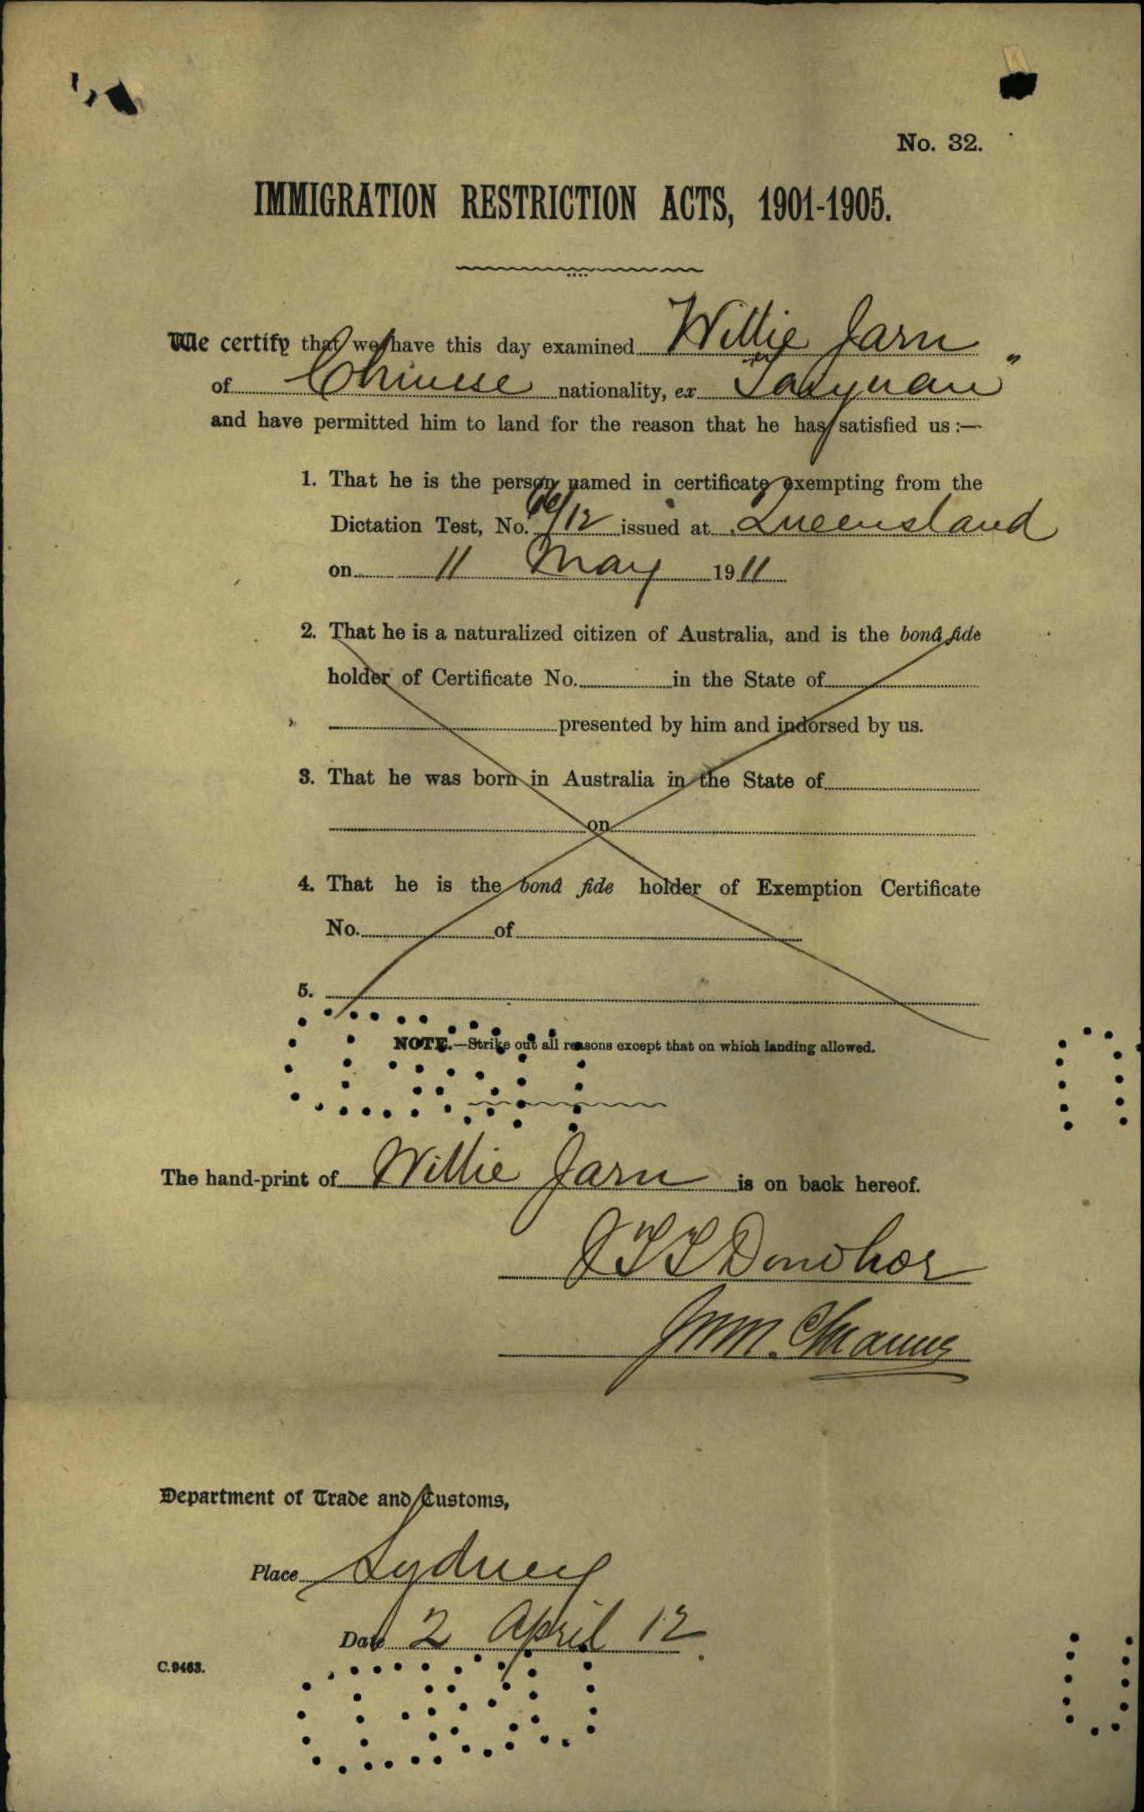 No. 32.
IMMIGRATION RESTRICTION ACTS, 1901-1905.
We certify that we have this day examined Willie Jarn
of Chinese nationality, ex "Taiyuan"
and have permitted him to land for the reason that he has satisfied us :—
1. That he is the person named in certificate exempting from the
Dictation Test, No. /12 issued at Queensland
on 11 May 1911
2. That he is a naturalized citizen of Australia, and is the bonâ fide
holder of Certificate No. in the State of
presented by him and indorsed by us.
3. That he was born in Australia in the State of
on
4. That he is the bonâ fide holder of Exemption Certificate
No. of
5.
NOTE.—Strike out all reasons except that on which landing allowed.
The hand-print of Willie Jarn is on back hereof.
J T T Donohoe
Department of Trade and Customs,
Place Sydney
Date 2 April 12.
C.9463.